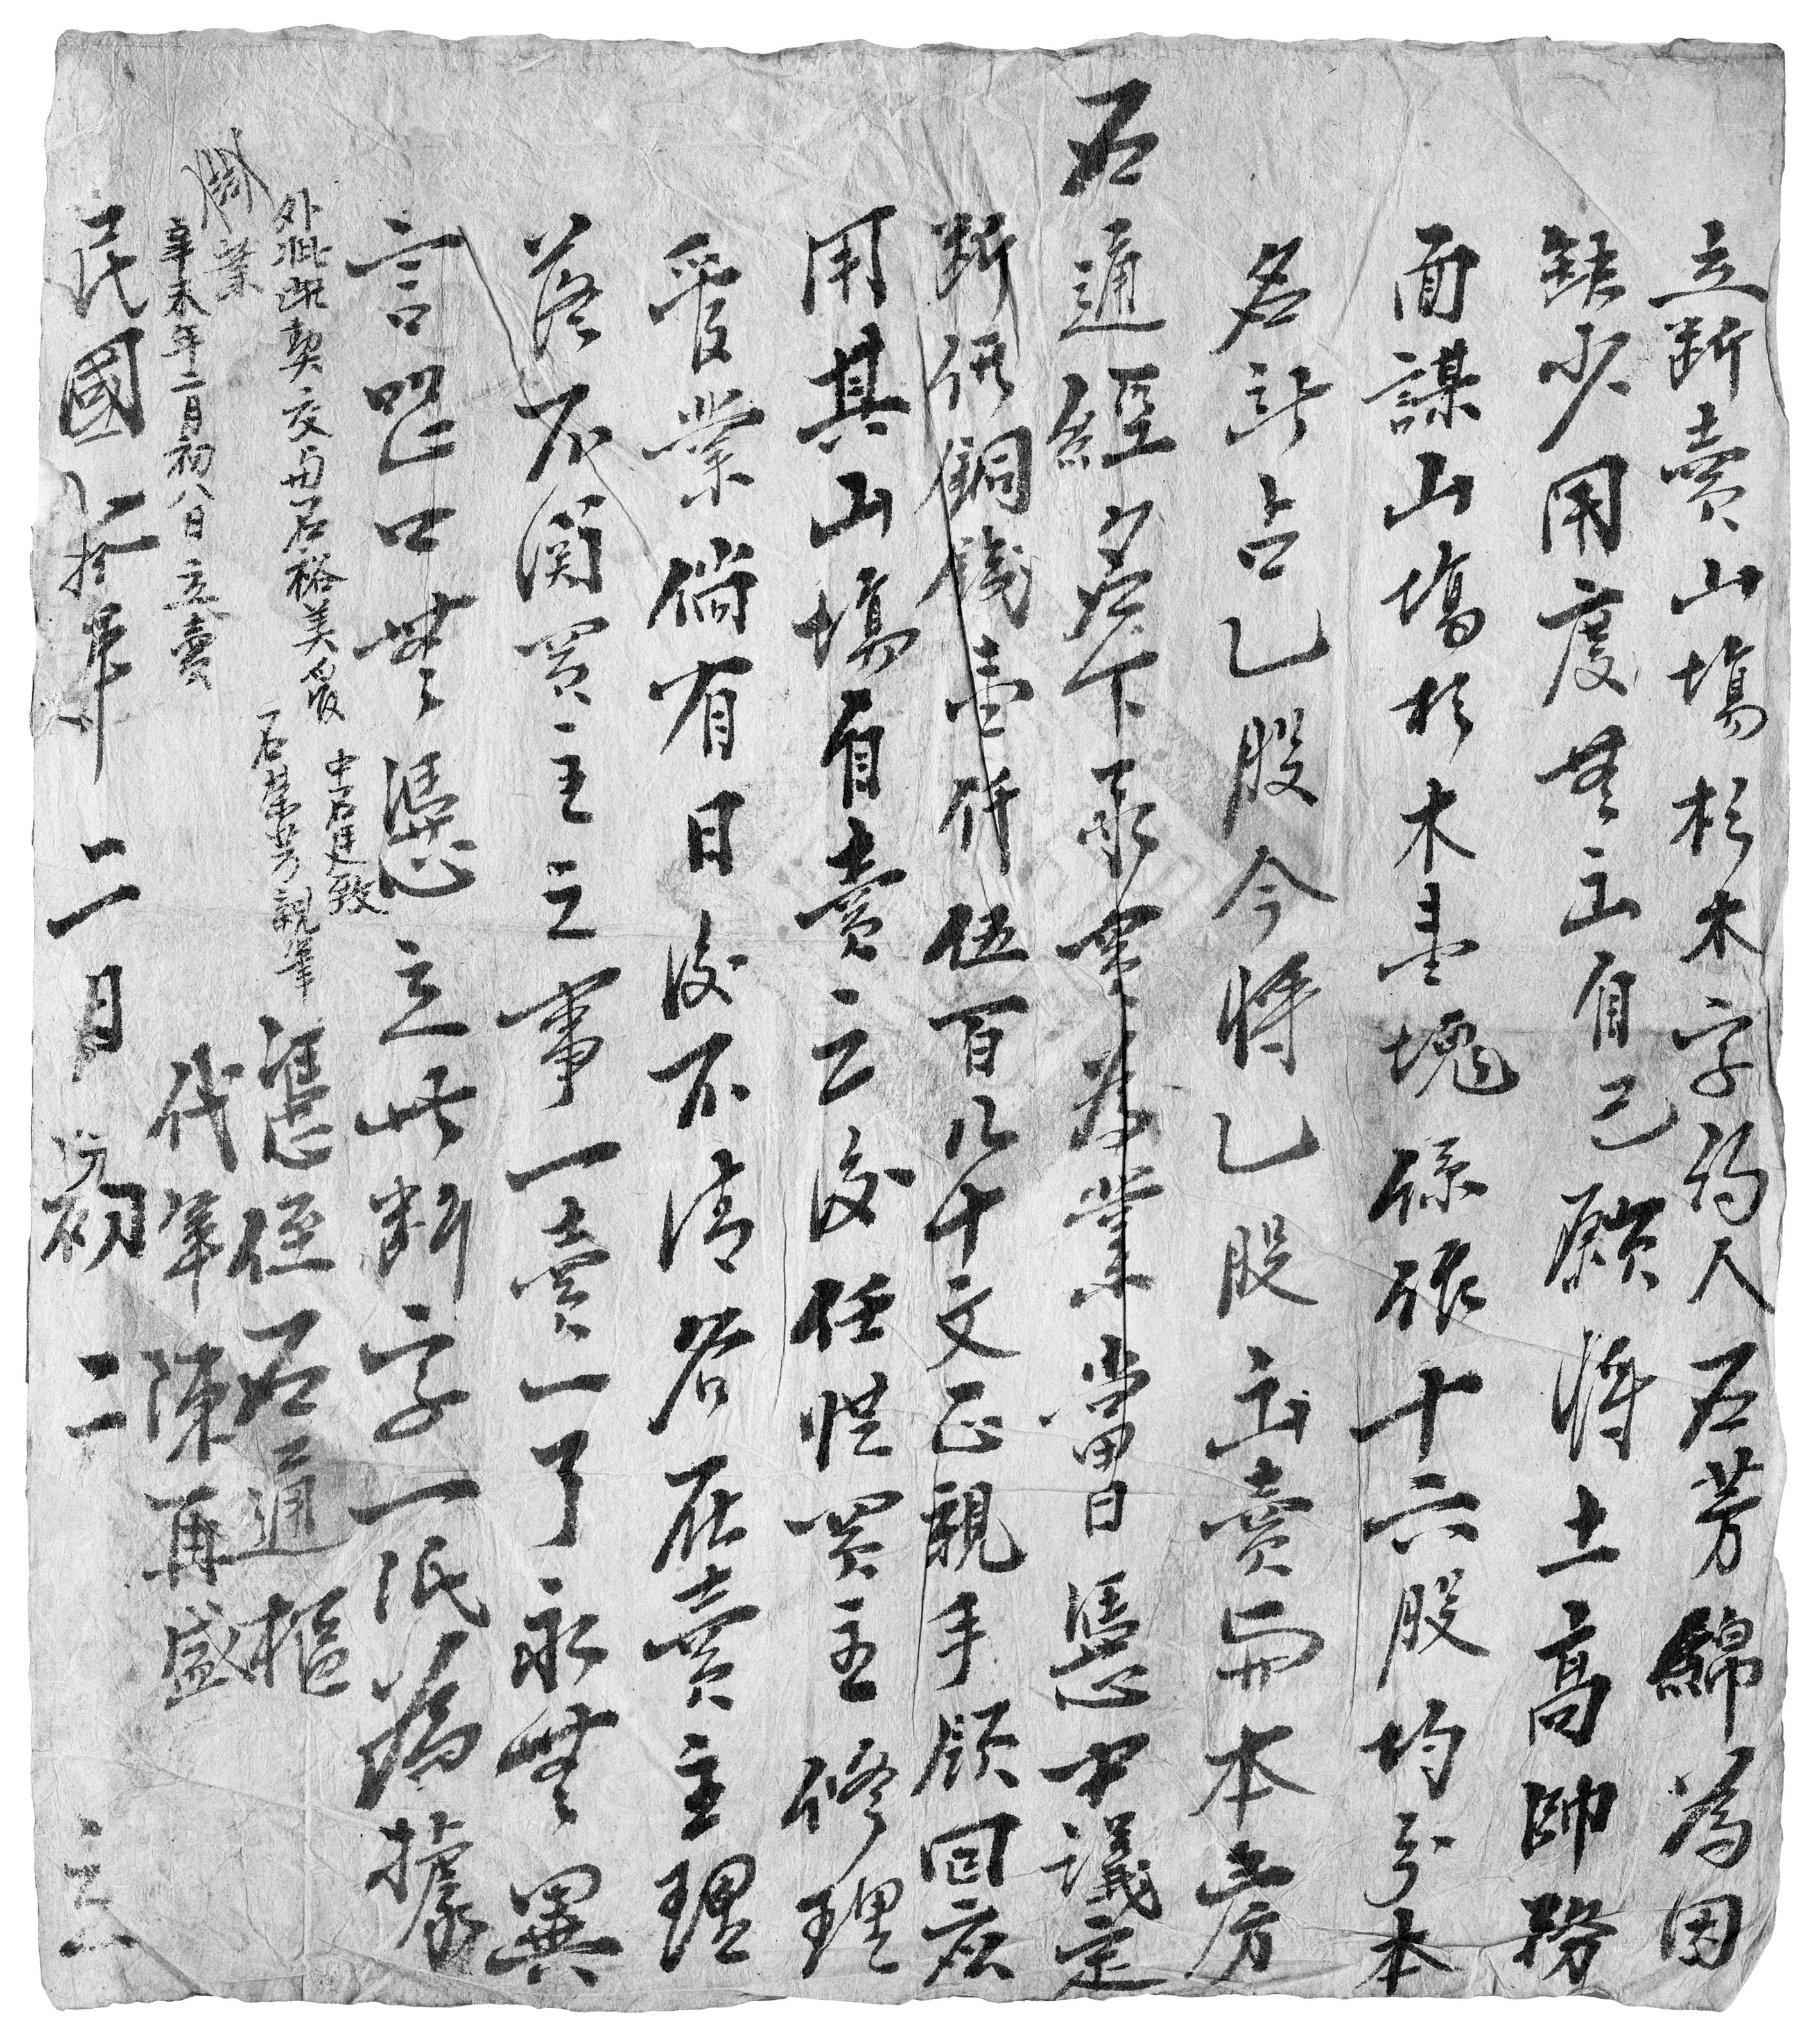 立斷賣山塲杉木字約人石芳錦為因
缺少用度無出自己願將土高帥務
面謀山塲杉木壹塊係派十六股均分本
名計占乙股今將乙股出賣與本房
石通經名下承買為業當日憑中議定
斷價銅錢壹仟伍百八十文正親手領回應
用其山塲自賣之後任憑買主修理
管業倘有日後不清若在賣主理
落不關買主之事一賣一了永無異
言恐口無憑立此斷字一纸為據
中石廷致
外批此契交与石裕美
石榮芳親筆
憑侄石通樞
業
代筆陳再盛
辛未年二月初八日立賣
民國二拾年二月初二立